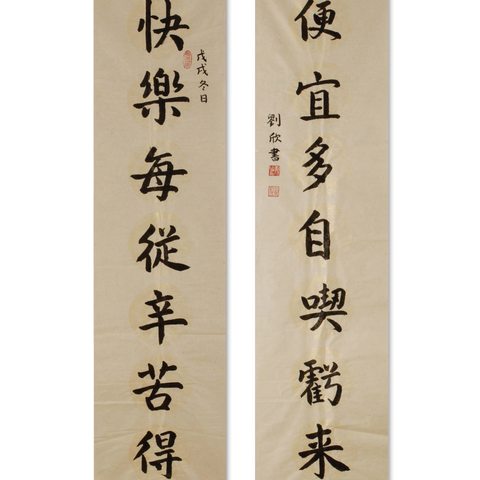 快樂每従辛苦得
戊戌冬日
便宜多自喫虧来
劉欣書